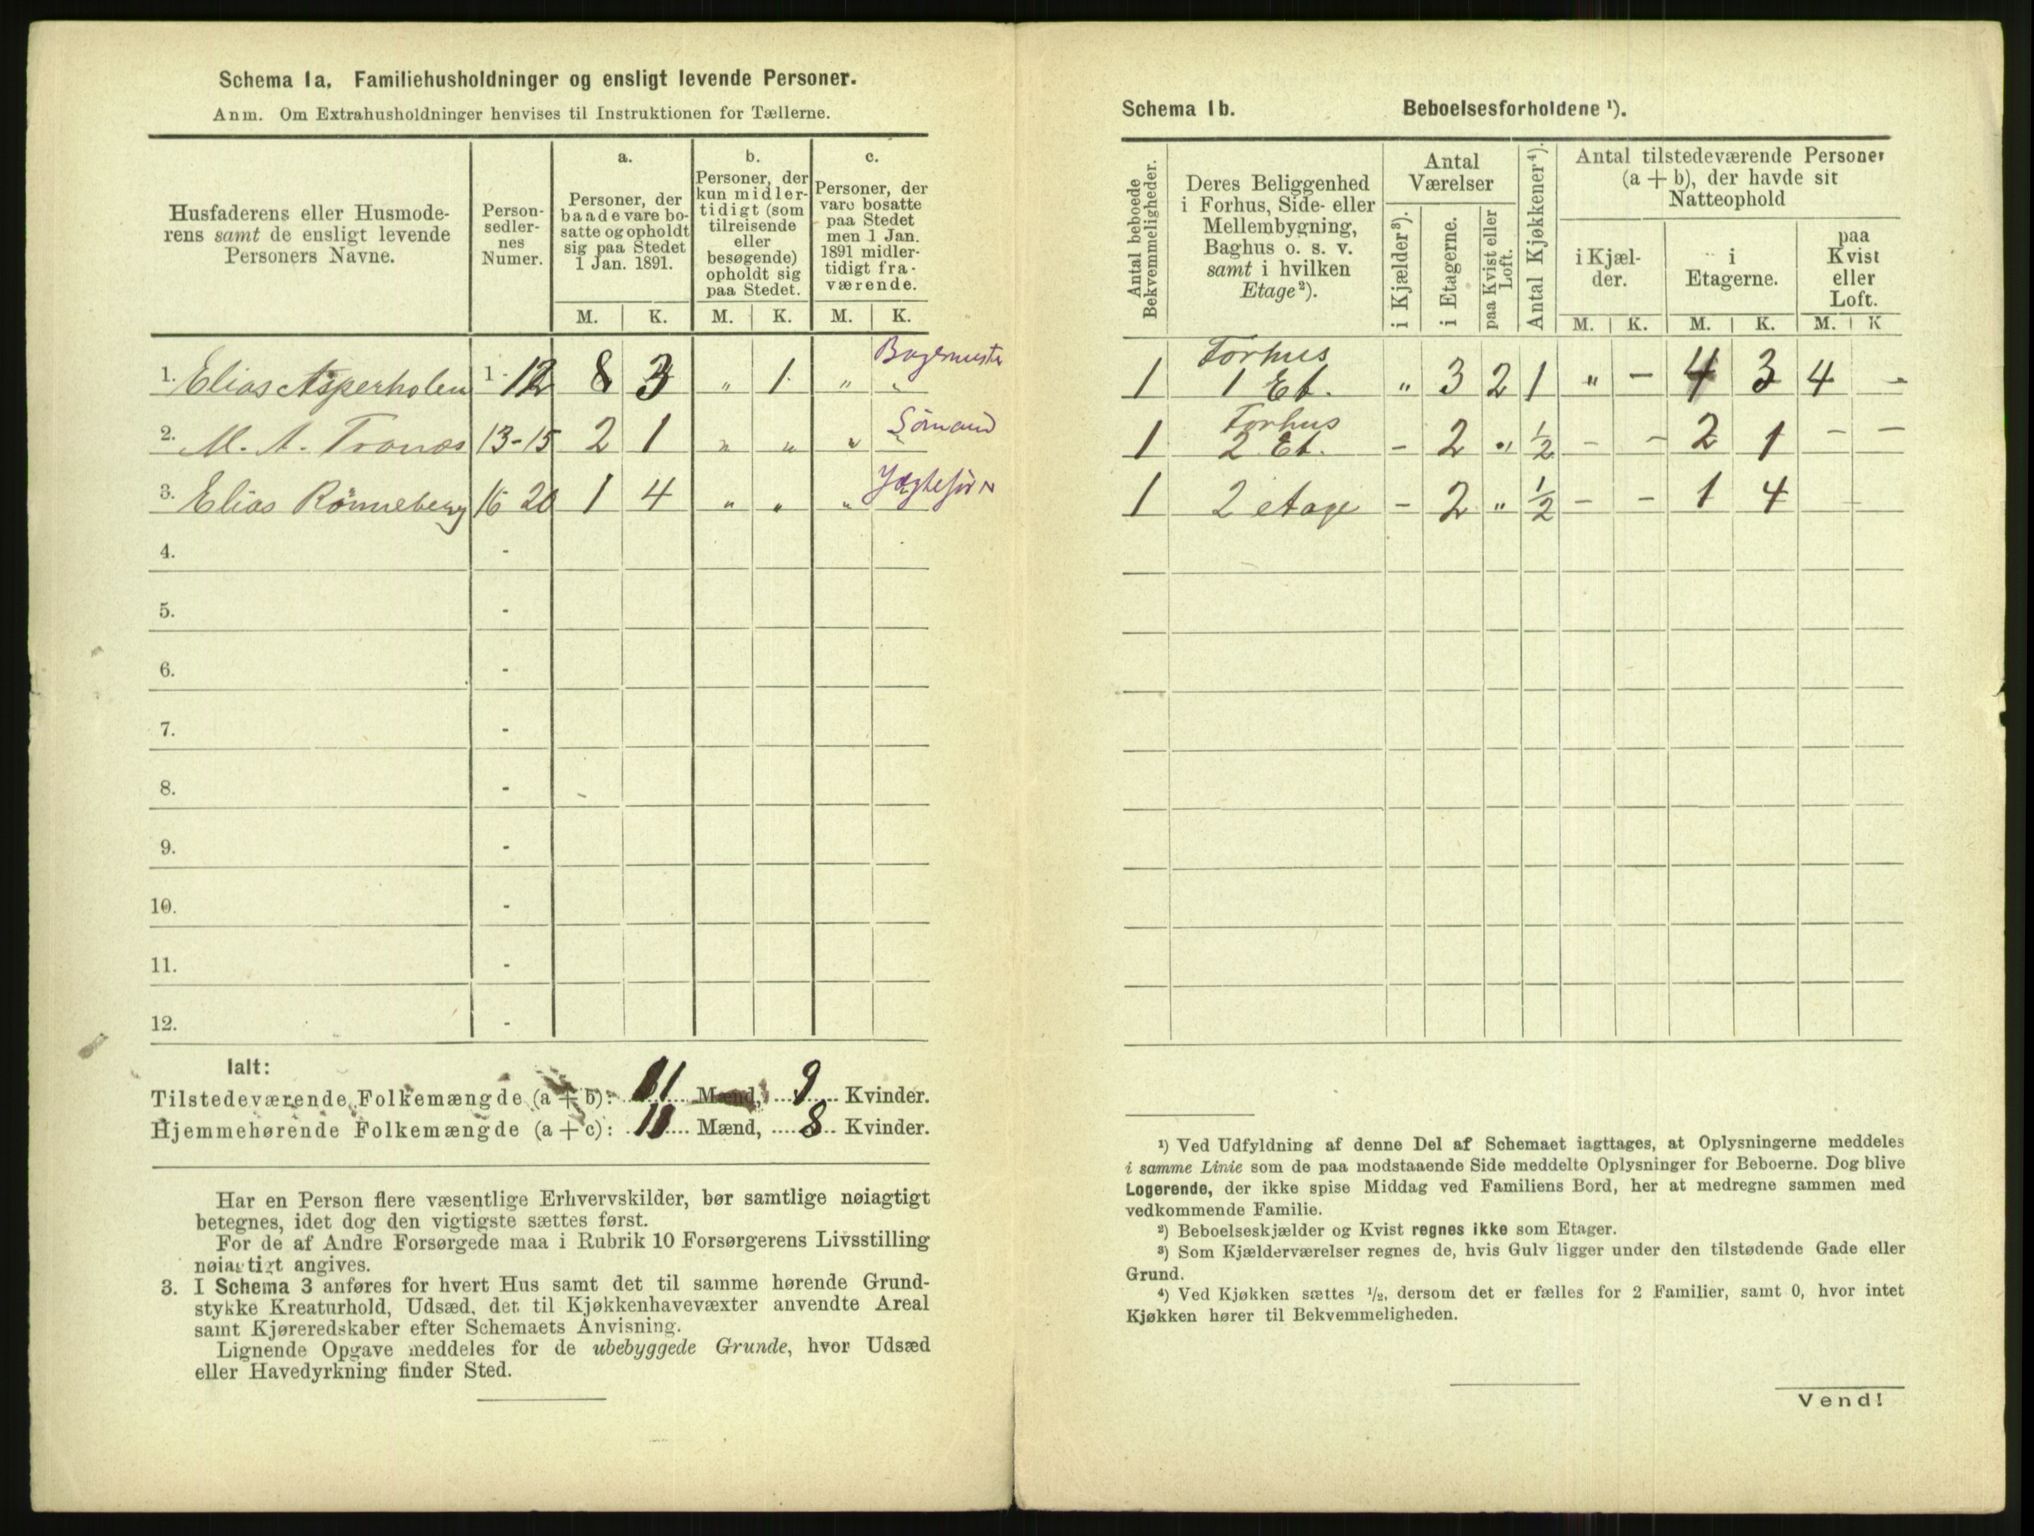 Schema 1a. Familiehusholdninger og ensligt levende Personer.
Anm. Om Extrahusholdninger henvises til Instruktionen for Tællerne.
Husfaderens eller Husmode-
rens samt de ensligt levende
Personers Navne.
Person-
sedler-
nes
Numer.
a.
Personer, der
baade vare bo-
satte og opholdt
sig paa Stedet
1 Jan. 1891.
b.
Personer, der
kun midler-
tidigt (som
tilreisende
eller
besøgende)
opholdt sig
paa Stedet.
c.
Personer, der
vare bosatte
paa Stedet
men 1 Jan.
1891 midler-
tidigt fra-
værende.
M. K. M. K. M. K.
1. Elias Asperholen 1-12 8 3 " 1. " " Bagermester
2. M. A. Tranæs 13-15 2 1 " " " " Sømand
3. Elias Rønneberg 16 20 1 4 " " "
4. -
5. -
6. -
7. -
8. -
9. -
10. -
11. -
12. -
Ialt:
Tilstedeværende Folkemængde (a + b): 11 Mænd, 9 Kvinder.
Hjemmehørende Folkemængde (a + c): 11 Mænd, 8 Kvinder.
Har en Person flere væsentlige Erhvervskilder, bør samtlige nøiagtigt
betegnes, idet dog den vigtigste sættes først.
For de af Andre Forsørgede maa i Rubrik 10 Forsørgerens Livsstilling
nøiagtigt angives.
3. I Schema 3 anføres for hvert Hus samt det til samme hørende Grund-
stykke Kreaturhold, Udsæd, det til Kjøkkenhavevæxter anvendte Areal
samt Kjøreredskaber efter Schemaets Anvisning.
Lignende Opgave meddeles for de ubebyggede Grunde, hvor Udsæd
eller Havedyrkning finder Sted.
Schema 1b. Beboelsesforholdene ¹).
Antal beboede
Bekvemmeligheder.
Deres Beliggenhed
i Forhus, Side- eller
Mellembygning,
Baghus o. s. v.
samt i hvilken
Etage²).
Antal
Værelser
i Kjælder³).
i Etagerne.
paa Kvist eller
Loft.
Antal Kjøkkener⁴).
Antal tilstedeværende Personer
(a + b), der havde sit
Natteophold
i Kjæl-
der.
i
Etagerne.
paa
Kvist
eller
Loft.
M. K. M. K. M. K
1 Forhus 1 Et. " 3 2 1 " - 4 3 4 -
1 Forhus 2 Et. - 2 " ½ - - 2 1 - -
1 2 etage - 2 " ½ - - 1 4
¹) Ved Udfyldning af denne Del af Schemaet iagttages, at Oplysningerne meddeles
i samme Linie som de paa modstaaende Side meddelte Oplysninger for Beboerne. Dog blive
Logerende, der ikke spise Middag ved Familiens Bord, her at medregne sammen med
vedkommende Familie.
²) Beboelseskjælder og Kvist regnes ikke som Etager.
³) Som Kjælderværelser regnes de, hvis Gulv ligger under den tilstødende Gade eller
Grund.
⁴) Ved Kjøkken sættes ½, dersom det er fælles for 2 Familier, samt 0, hvor intet
Kjøkken hører til Bekvemmeligheden.
Vend!